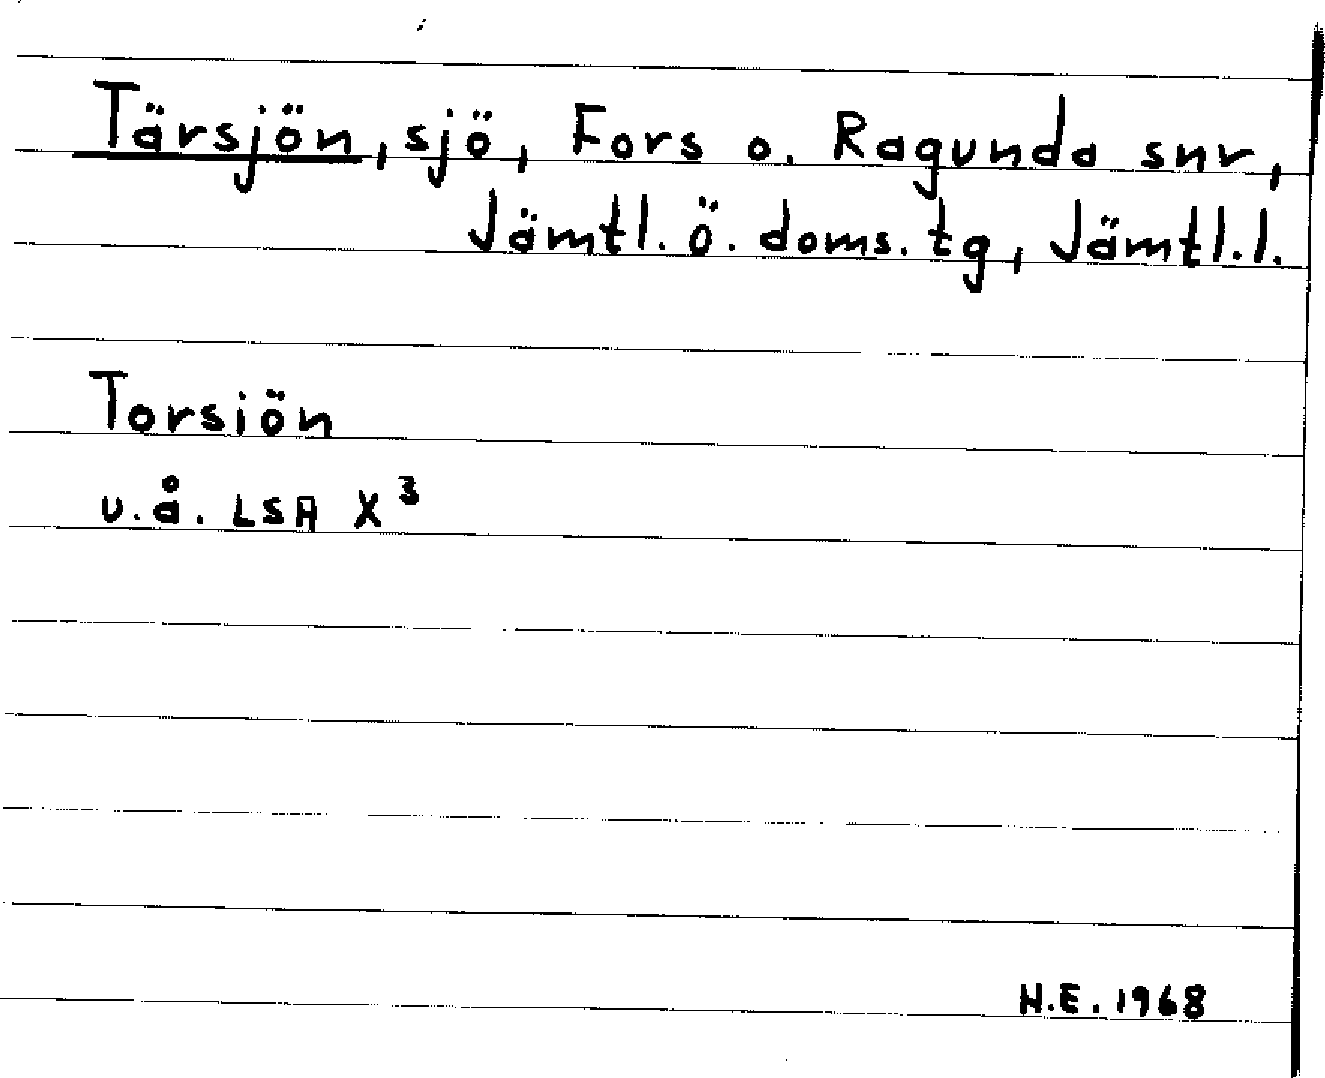 Tärsjön, sjö, Fors o. Ragunda snr,
Jämtl. ö. doms. tg, Jämtl. l.
Torsiön
u.å. LSA X³
H.E. 1968